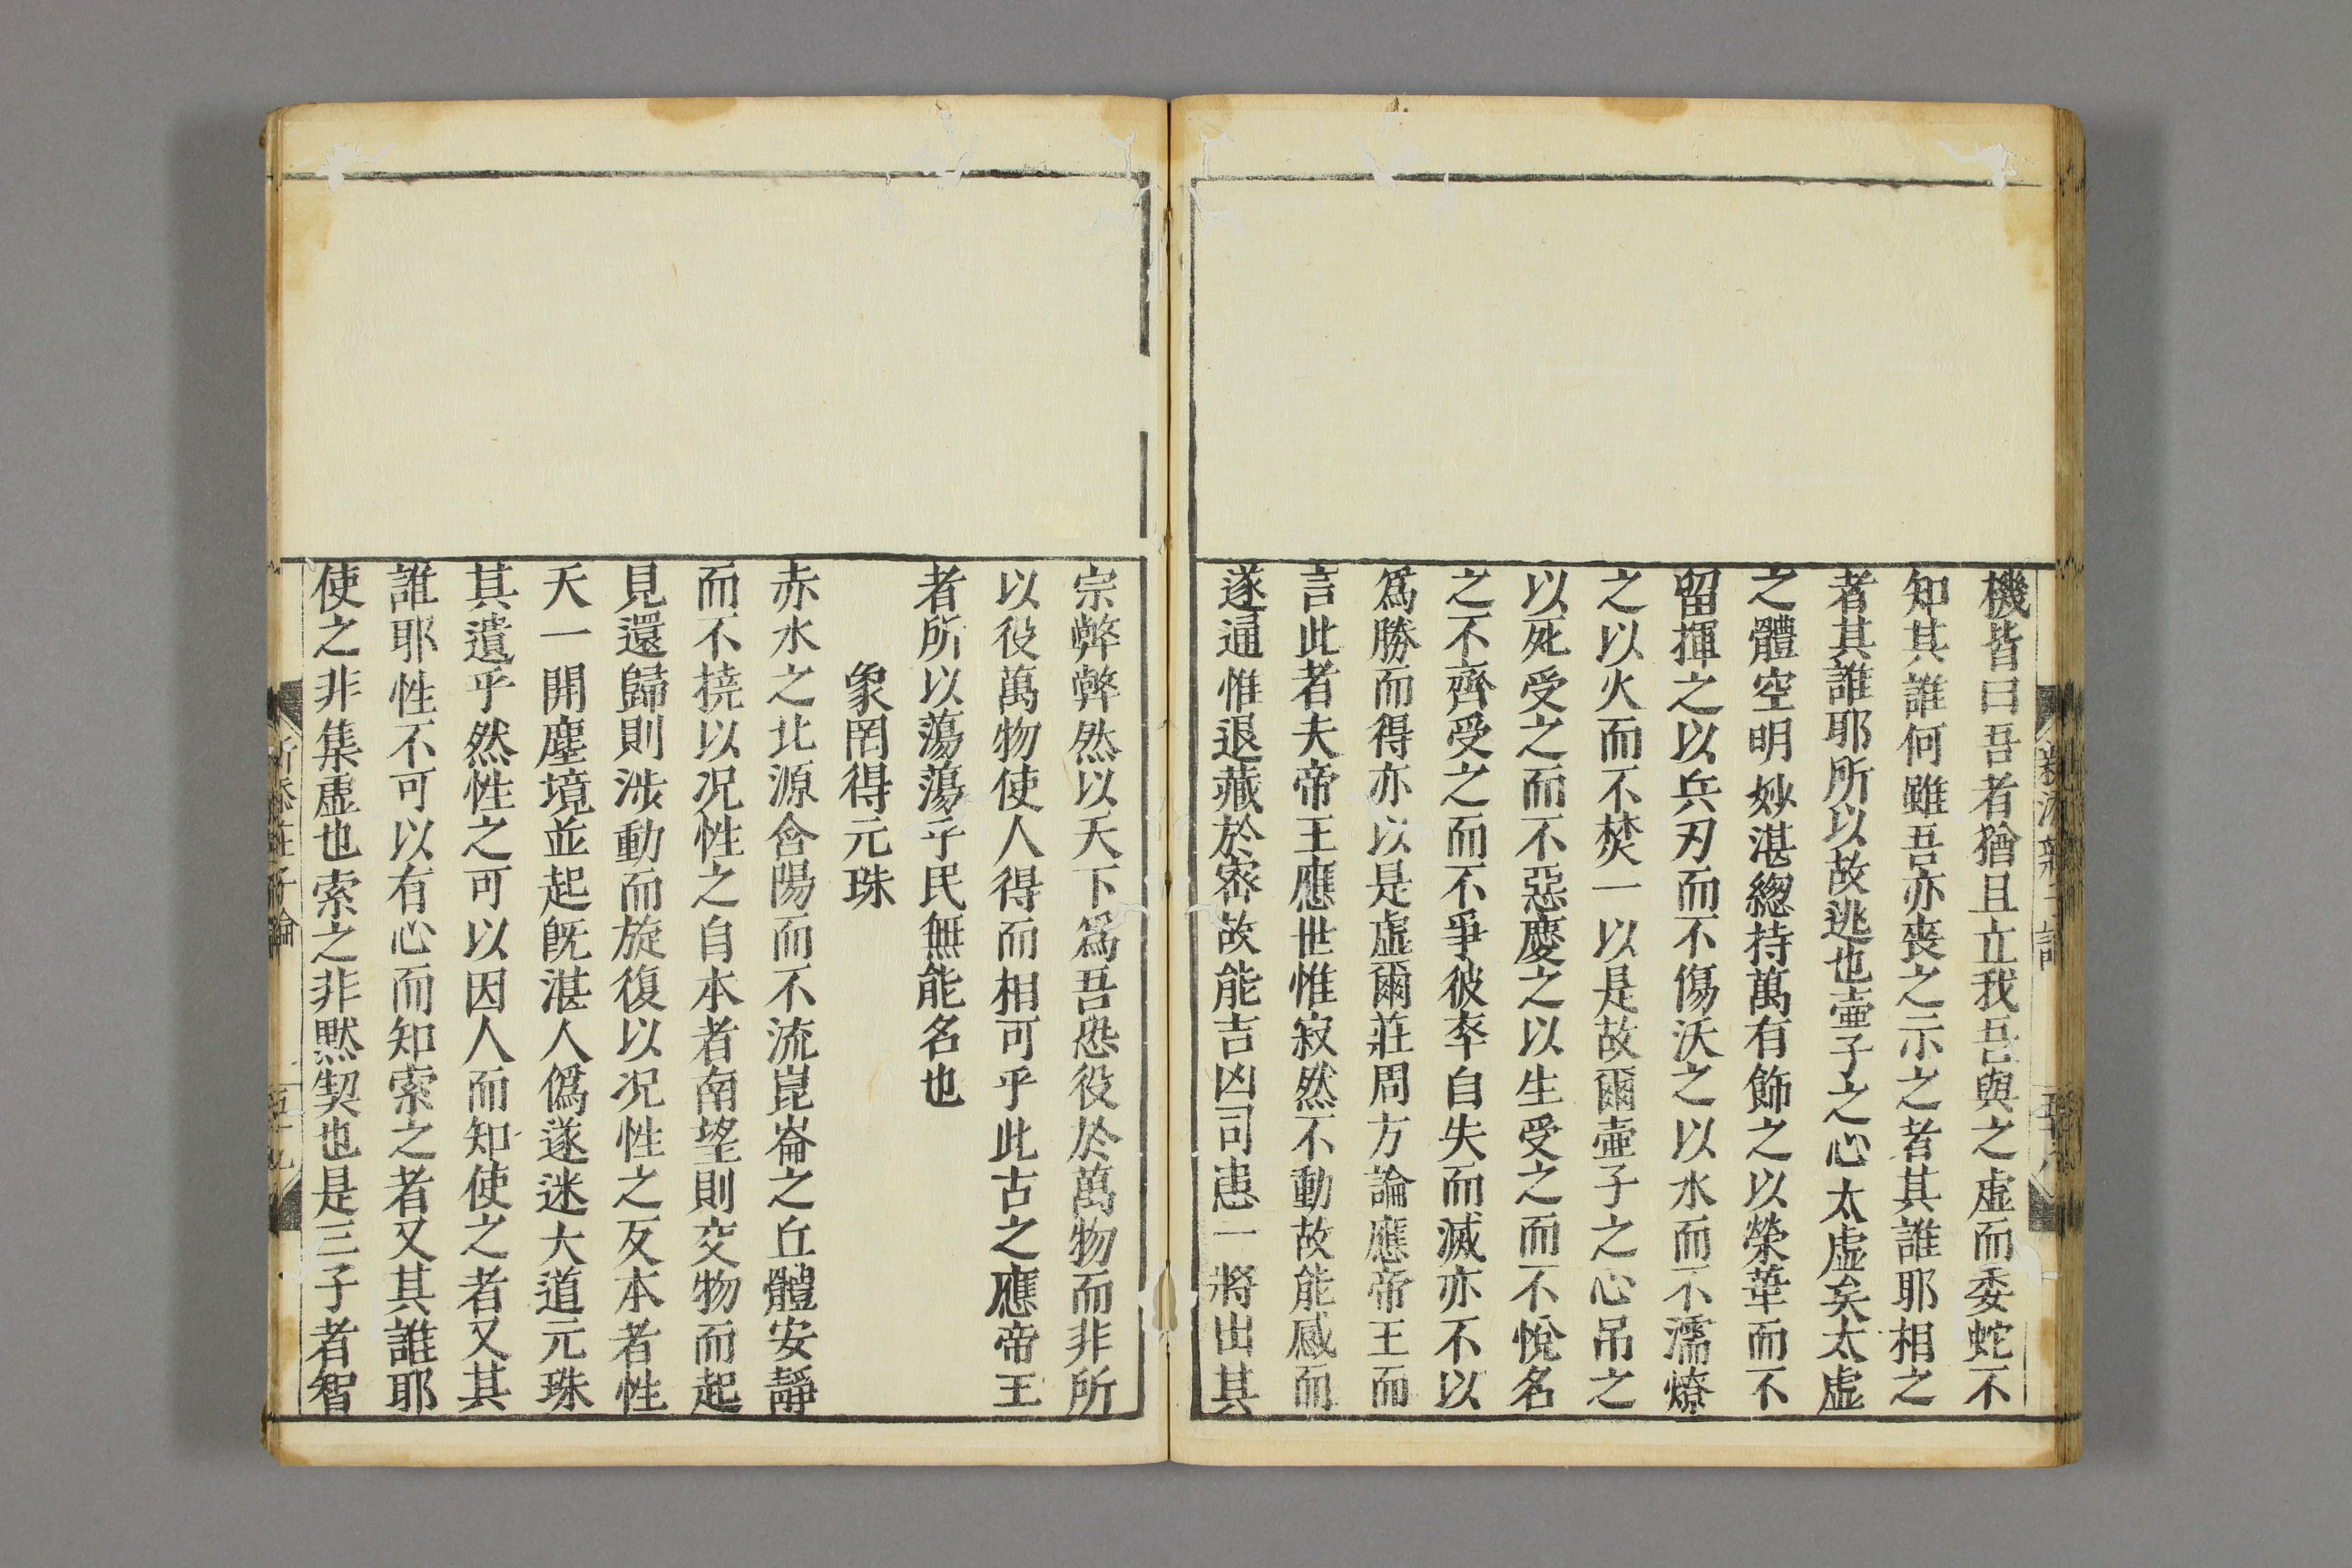 機皆曰吾者猶且立我吾與之虛而委蛇不
知其誰何雖吾亦喪之示之者其誰耶相之
者其誰耶所以故逃也壷子之心太虛矣太虛
之體空明妙湛緫持萬有飾之以榮華而不
留揮之以兵刃而不傷沃之以水而不濡燎
之以火而不焚一以是故爾壷子之心吊之
以死受之而不惡慶之以生受之而不悅名
之不齊受之而不爭彼卒自失而滅亦不以
爲勝而得亦以是虛爾莊周方論應帝王而
言此者夫帝王應世惟寂然不動故能感而
遂通惟退藏於宻故能吉凶司患一將出其
宗弊弊然以天下爲吾恐役於萬物而非所
以役萬物使人得而相可乎此古之應帝王
者所以蕩蕩乎民無能名也
象罔得元珠
赤水之北源含陽而不流崑崙之丘體安靜
而不撓以况性之自本者南望則交物而起
見還歸則涉動而旋復以况性之反本者性
天一開塵境並起旣湛人僞遂迷大道元珠
其遺乎然性之可以因人而知使之者又其
誰耶性不可以有心而知索之者又其誰耶
使之非集虛也索之非黙契也是三子者智
新添莊子論